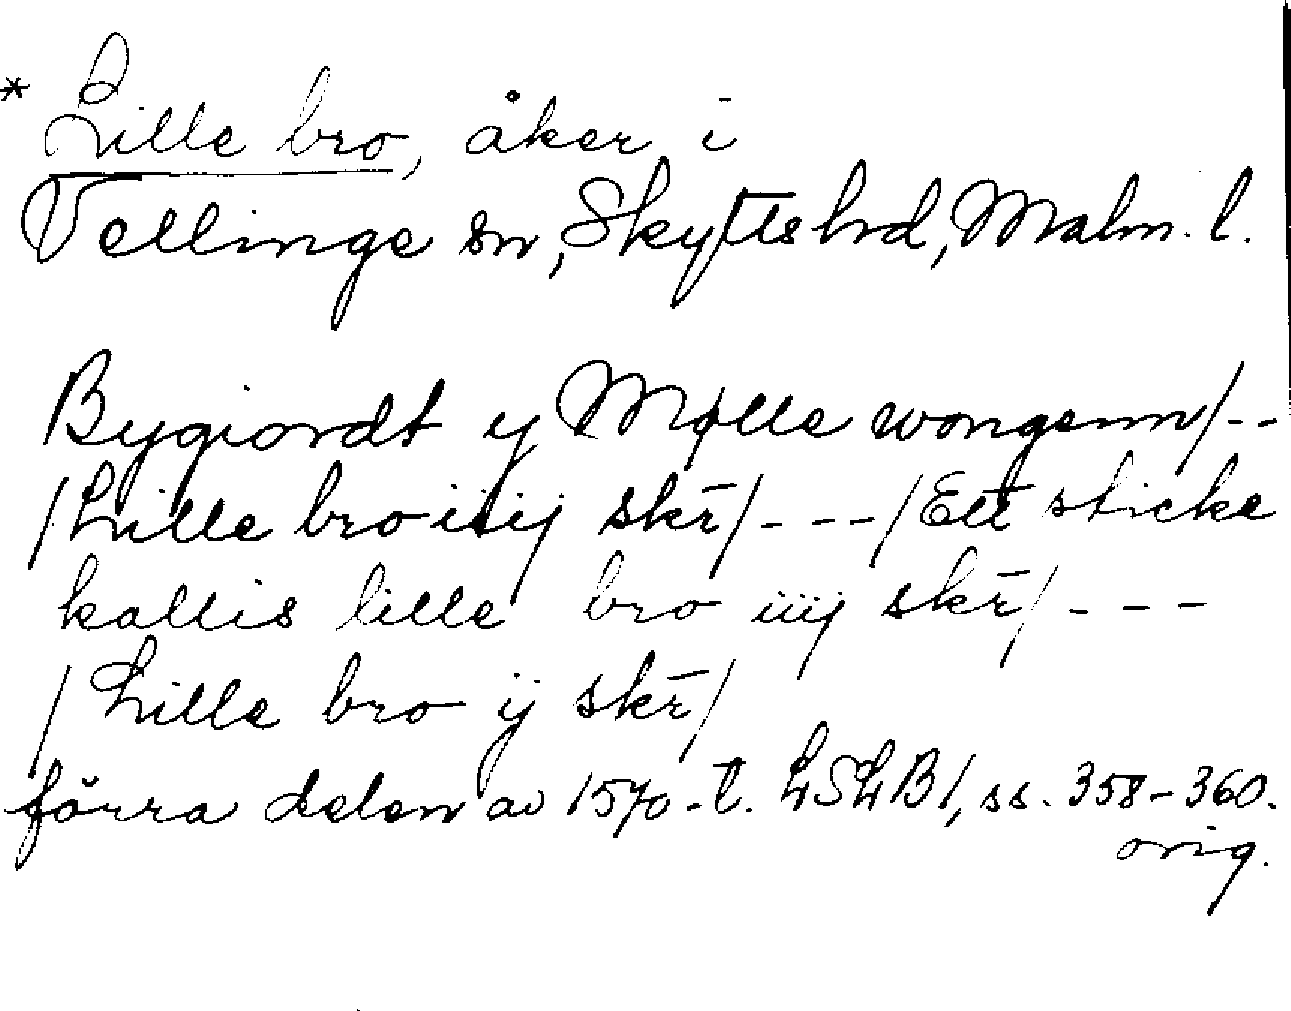 * Lille bro, åker i
Vellinge sn, Skytts hd, Malm. l.
Bygiordt y Mølle wongenn/--
/Lille bro iiij skr̄/---/Ett sticke
kallis lille bro iiij skr̄/---
/Lille bro ij skr̄/
förra delen av 1570-t. LSLB1, ss. 358-360.
orig.